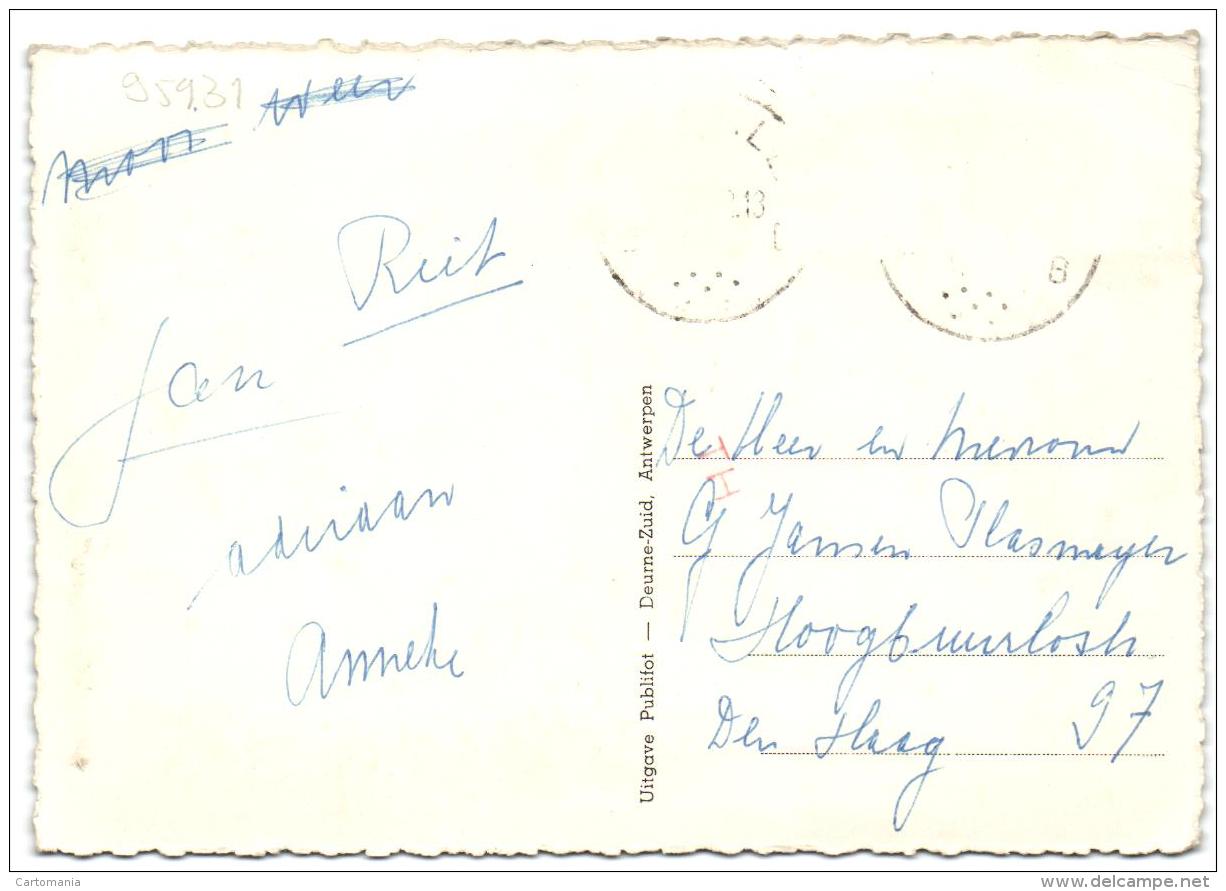 95931
Riet
Jan
adriaan
Anneke
.13
B
Uitgave Publifot — Deurne-Zuid, Antwerpen
De Heer en Mevrouw
G Jansen Plasmeyer
Den Haag 97
Cartomania
www.delcampe.net